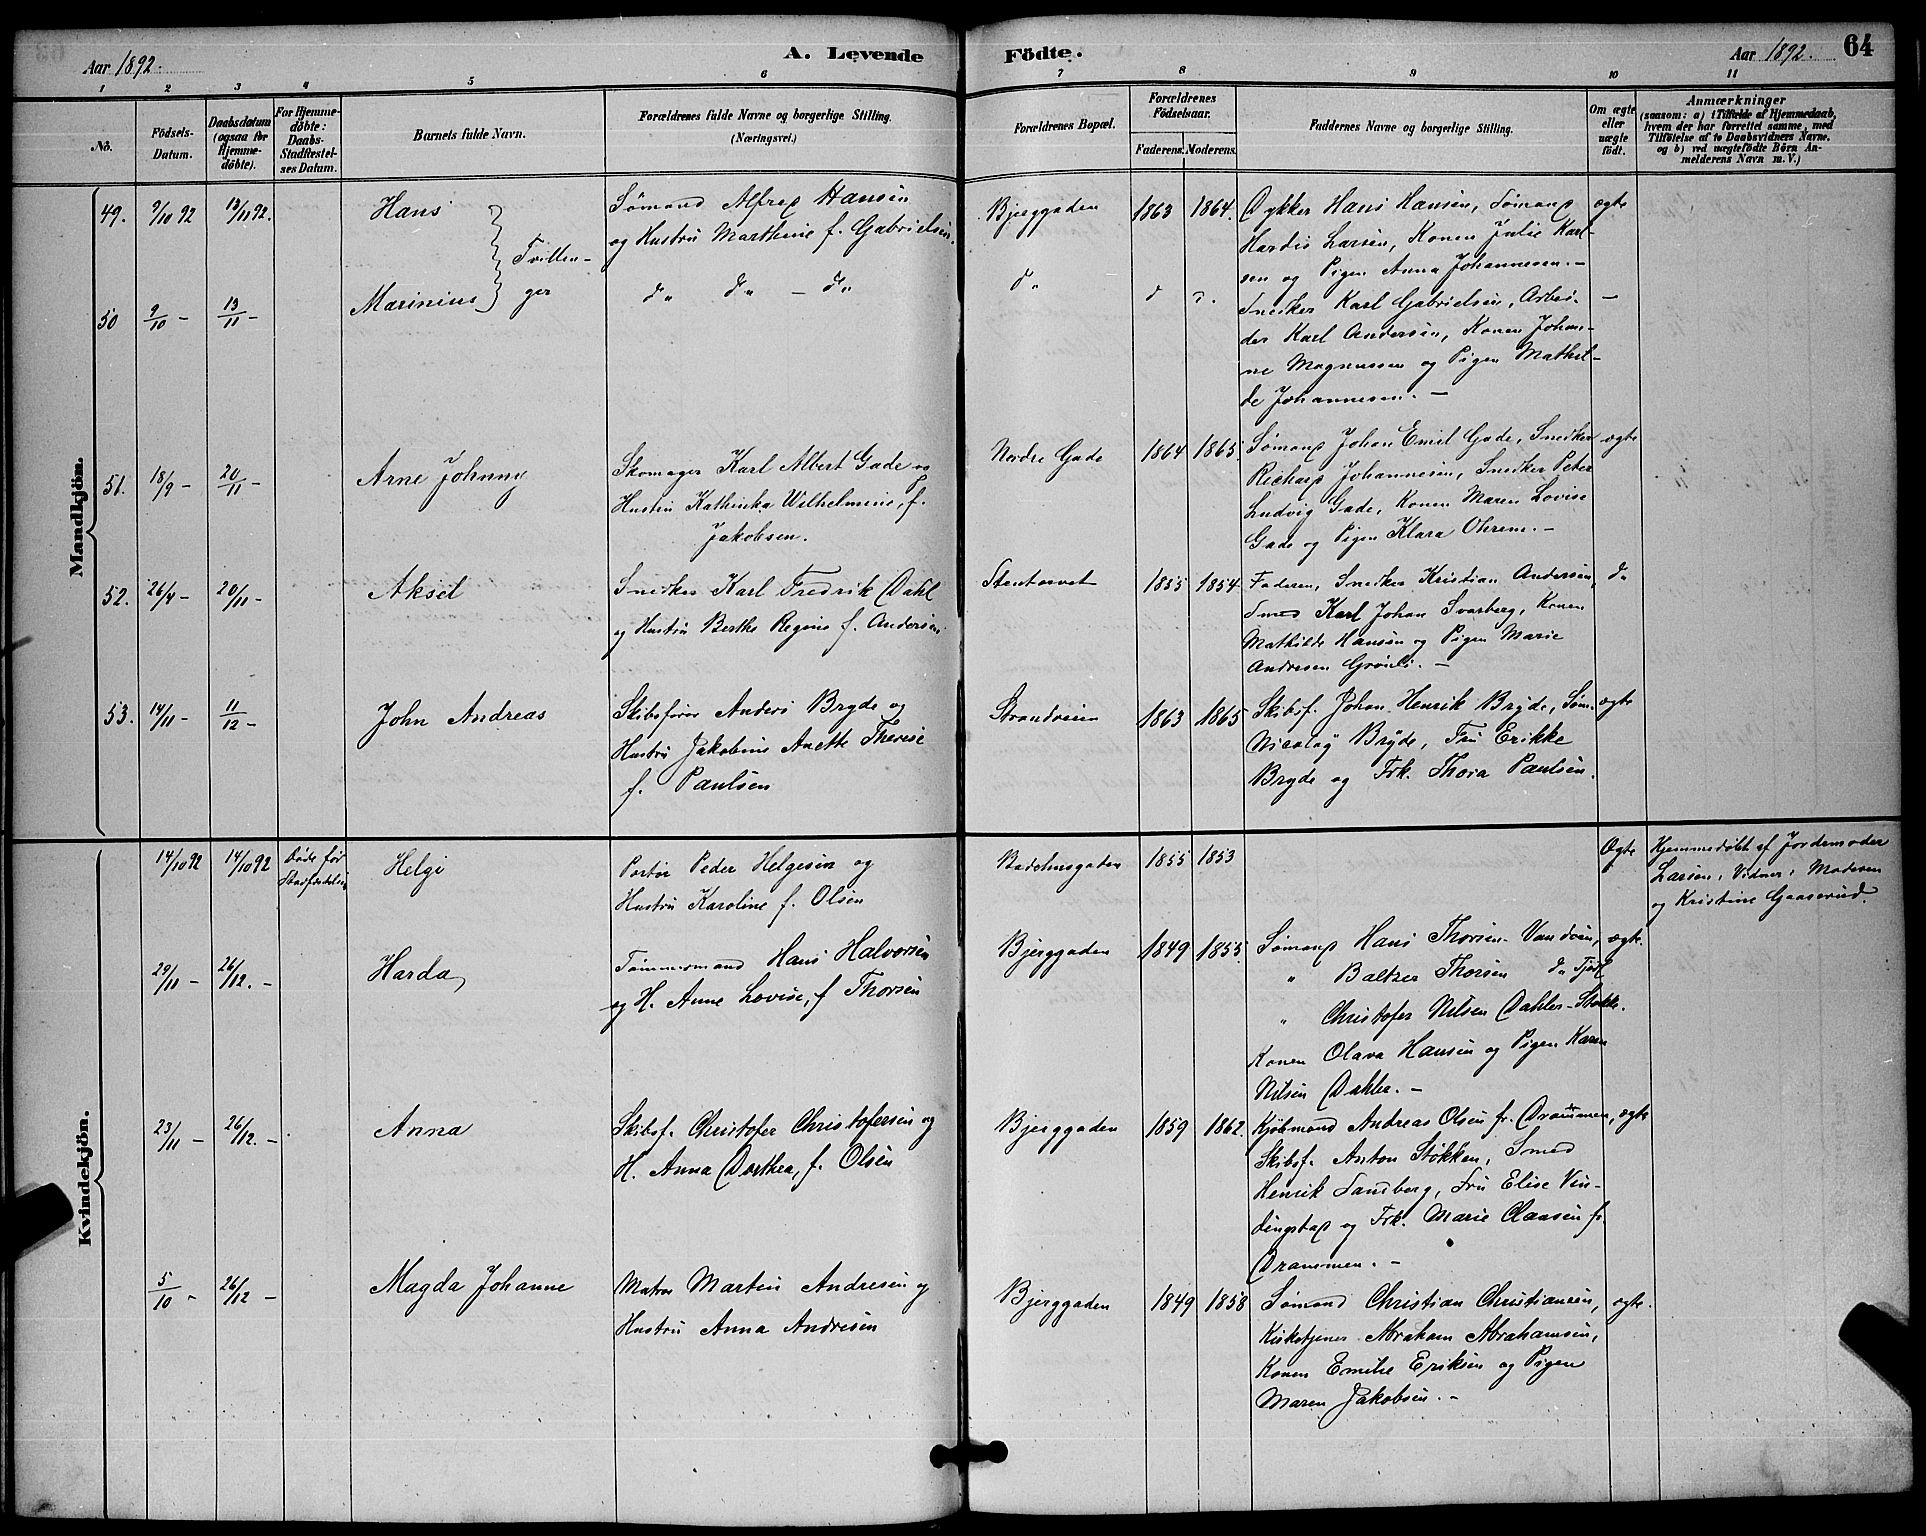 Aar 1892.
A. Levende
Födte.
Aar 1892.
64
1 2 3 4 5 6 7 8 9 10 11
No.
Födsels-
Datum.
Daabsdatum
(ogsaa for
Hjemme-
døbte).
For Hjemme-
döbte:
Daabs-
Stadfæstel-
ses Datum.
Barnets fulde Navn.
Forældrenes fulde Navne og borgerlige Stilling.
(Næringsvei.)
Forældrenes Bopæl.
Forældrenes
Födselsaar.
Faderens. Moderens.
Faddernes Navne og borgerlige Stilling.
Om ægte
eller
uægte
födt.
Anmærkninger
(saasom: a) i Tilfælde af Hjemmedaab,
hvem der har forrettet samme, med
Tilföielse af to Daabsvidners Navne.
og b) ved uægtefödte Börn An-
melderens Navn m. V.)
Mandkjön.
49. 9/10 92 13/11 92. Hans
Sømand Alfred Hansen
og Hustru Marthine f. Gabrielsen.
Bjerggaden 1863 1864.
Dykker Hans Hansen, Sømand
Hardis Larsen, Konen Julie Karl-
sen og Pigen Anna Johannesen.-
ægte
Tvillin-
ger
50 9/10 - 13/11 - Marinius
d„ d„ - d„
d„ d d.
Snedker Karl Gabrielsen, Arbei-
der Karl Andersen, Konen Johan-
ne Magnussen og Pigen Mathil-
de Johannesen. -
-
51. 18/9 - 20/11 - Arne Johnny
Skomager Karl Albert Gade og
Hustru Kathinka Wilhelmine, f.
Jakobsen.
Nordre Gade 1864 1865.
Sømand Johan Emil Gade, Snedker
Richard Johannesen, Snedker Peter
Ludvig Gade, Konen Maren Lovise
Gade og Pigen Klara Ohrem. -
ægte
52. 26/4 - 20/11 - Aksel
Snedker Karl Fredrik Dahl
og Hustru Berthe Regine f. Andersen.
Stentorvet 1855 1854.
Faderen, Snedker Kristian Andersen,
Smed Karl Johan Svarberg, Konen
Mathilde Hansen og Pigen Marie
Andresen Grönli. -
d„
53. 14/11 - 11/12 - John Andreas
Skibsfører Anders Bryde og
Hustru Jakobine Anette Therese
f. Paulsen
Strandveien 1863 1865
Skibsf. Johan Henrik Bryde, Søm.
Nicolay Bryde, Fru Erikke
Bryde og Frk. Thora Paulsen.
ægte
Kvindekjön.
14/10 92 14/10 92 Døde før
Stadfæstelsen
Helga
Portør Peder Helgesen og
Hustru Karoline f. Olsen
Badehusgaden 1855 1853
Ægte
Hjemmedøbt af Jordemoder
Larsen, Vidner: Moderen
og Kristine Gaaserud.
29/11 - 26/12. - Harda
Tømmermand Hans Halvorsen
og H. Anne Lovise, f Thorsen
Bjerggaden 1849 1855.
Sømand Hans Thorsen Vandøen,
„ Baltzer Thorsen d„ Tjøl
„ Christofer Nilsen Dahler-Stokke.
Konen Olava Hansen og Pigen Karen
Nilsen Dahler. -
ægte.
23/11 - 26/12. - Anna
Skibsf. Christofer Christofersen og
H. Anna Dorthea, f. Olsen
Bjerggaden 1859 1862.
Kjøbmand Andreas Olsen fr. Drammen,
Skibsf. Anton Støkken, Smed
Henrik Sandberg, Fru Elise Vin-
dingstad og Frk. Marie Clausen fr.
Drammen. -
ægte
5/10 - 26/12 - Magda Johanne
Matros Martin Andresen og
Hustru Anna Andresen
Bjerggaden 1849 1858
Sømand Christian Christiansen,
Kirketjener Abraham Abrahamsen,
Konen Emilie Eriksen og Pigen
Maren Jakobsen. -
ægte.